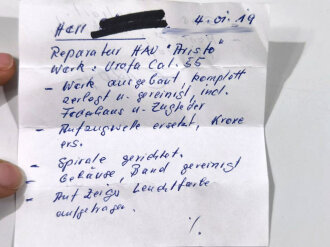 Herr 4.01.19
Reparatur HAU "Aristo"
Werk: Urofa Cal. 55
- Werk ausgebaut, komplett
zerlegt u. gereinigt, incl.
Federhaus u. Zugfeder
- Aufzugswelle ersetzt, Krone
ers.
- Spirale gerichtet.
- Gehäuse, Band gereinigt
- Auf Zeiger Leuchtfarbe
aufgetragen.